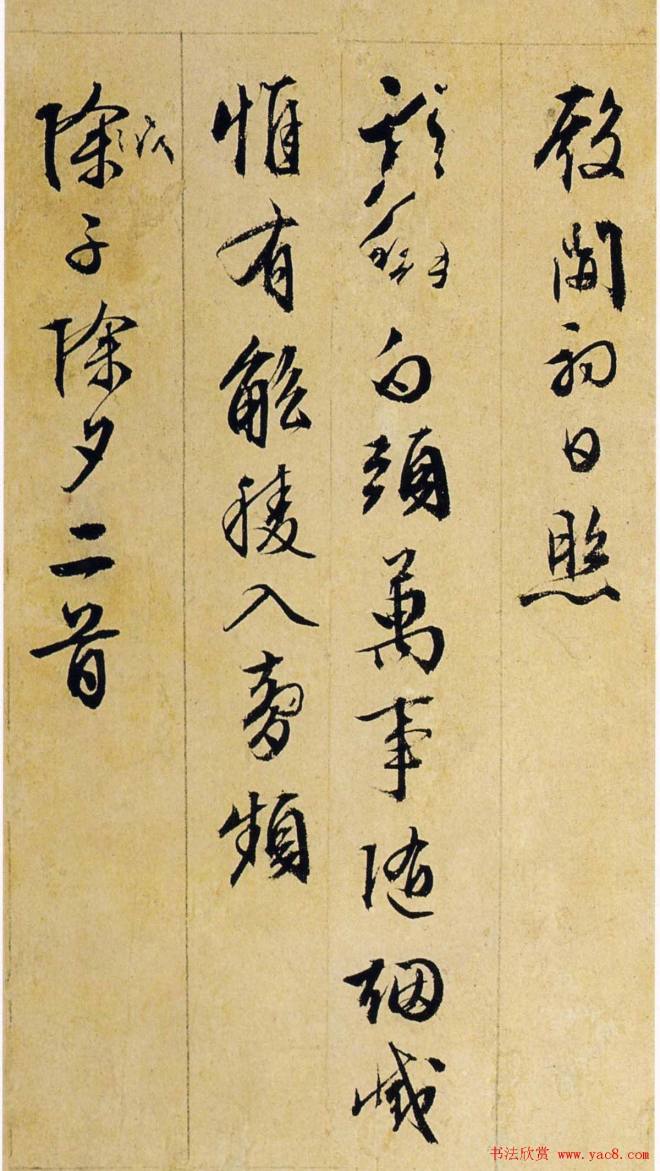 開初日照
白頭萬事隨烟滅
惟有觚稜入夢頻
子除夕二首
书法欣赏 www.yac8.com